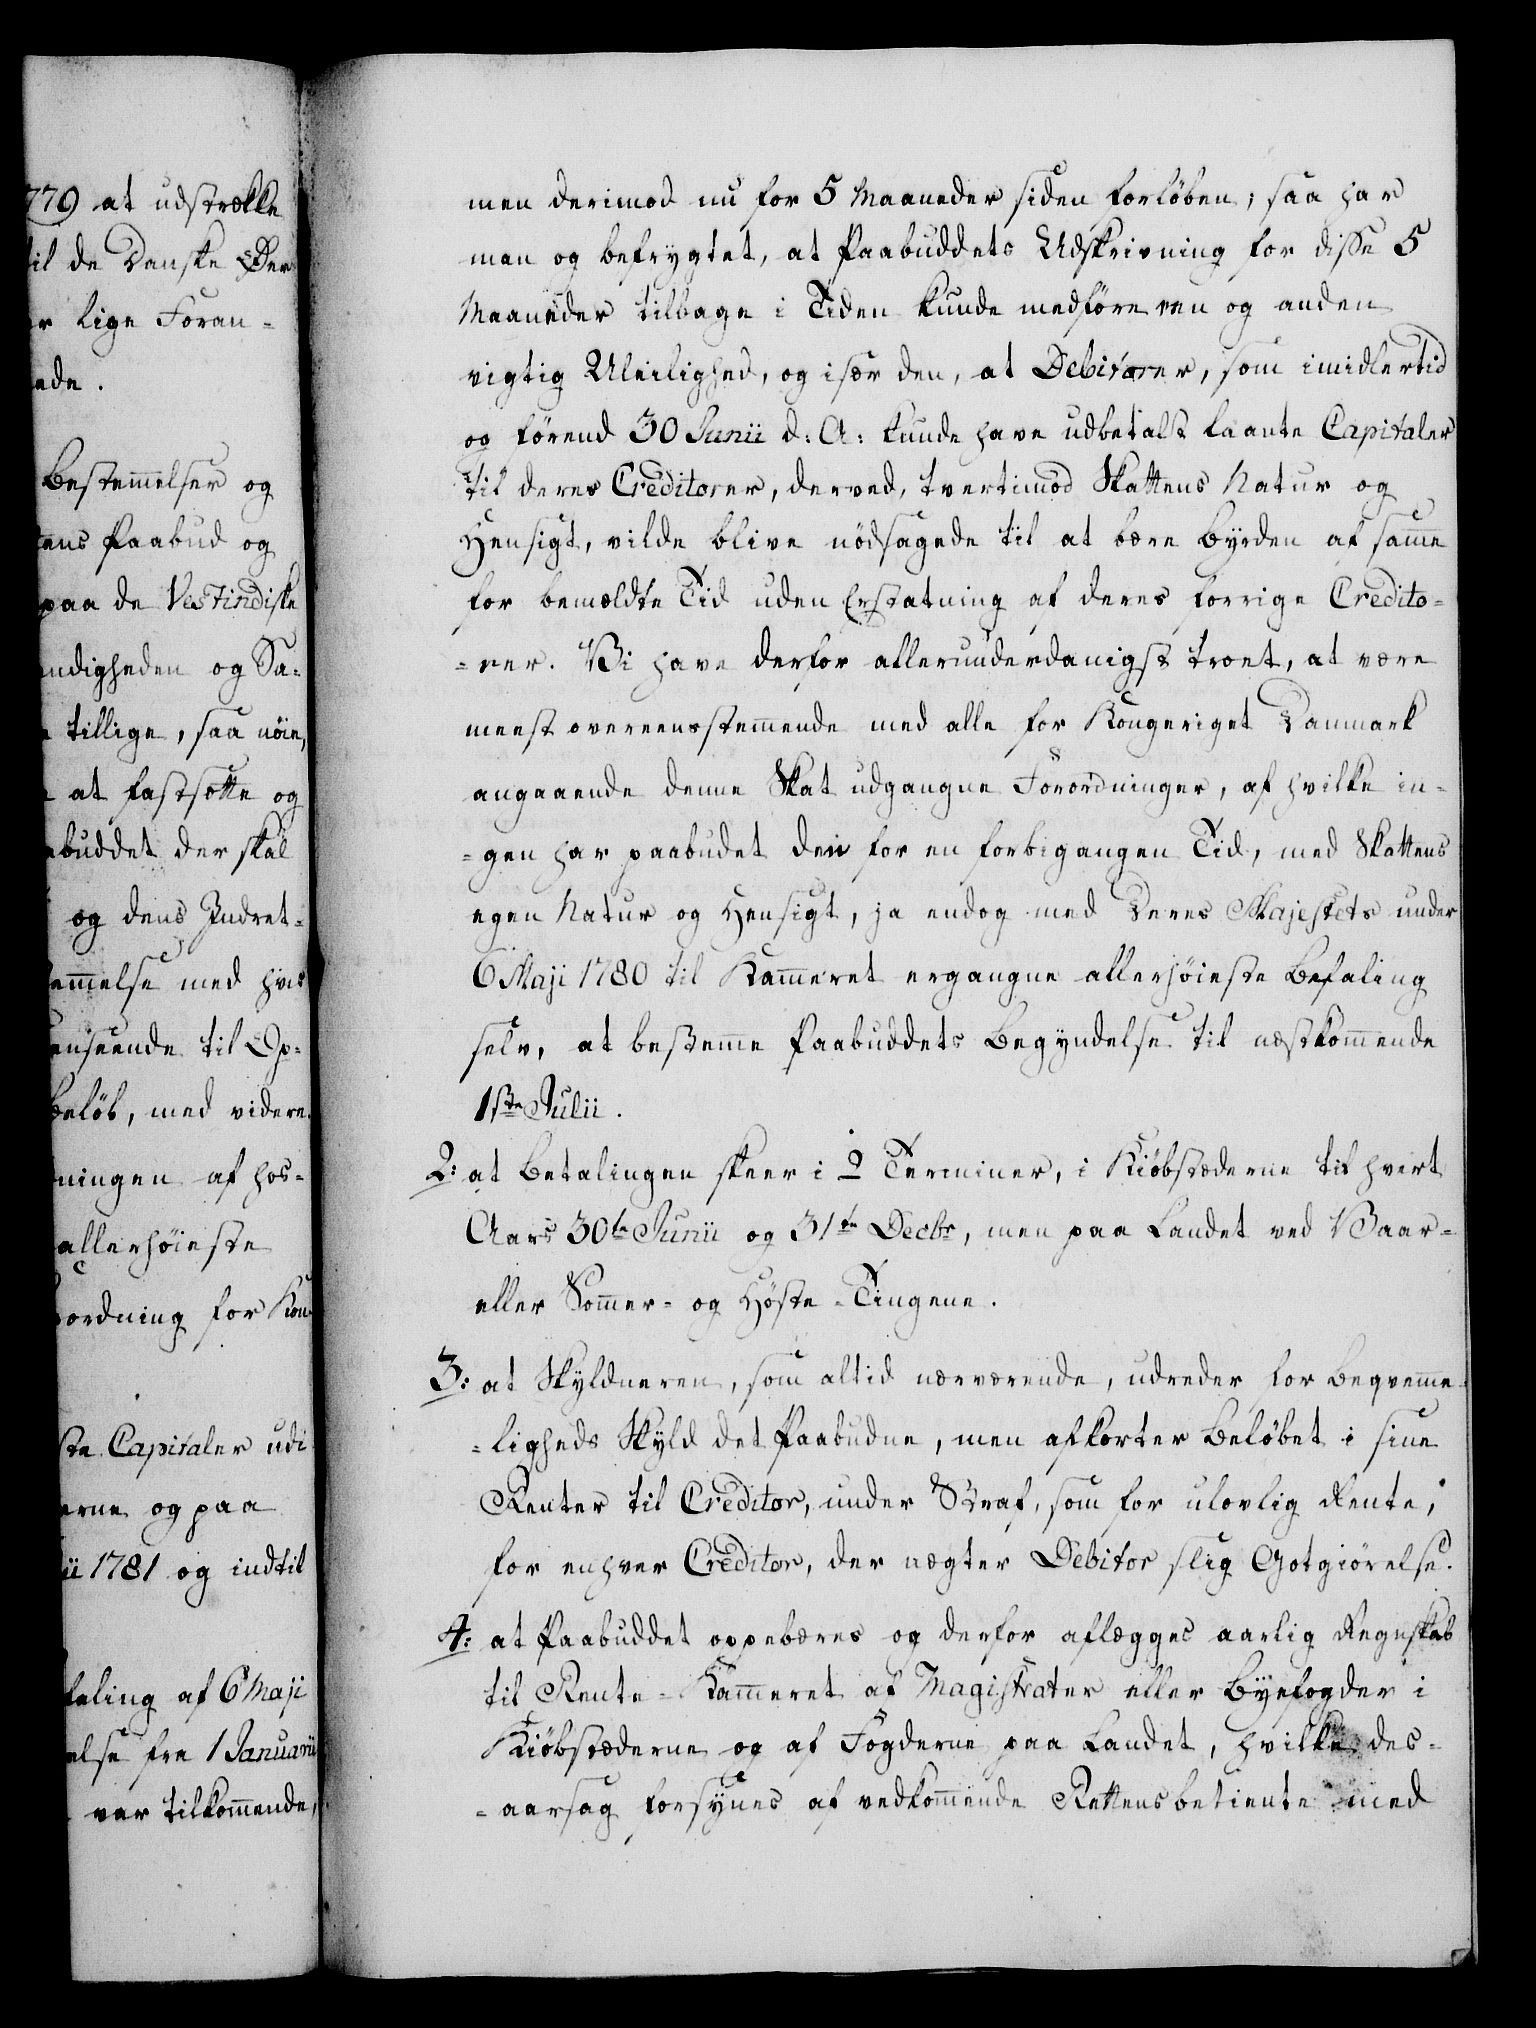 779 at udstrække
til de Danske Øer
er lige Foran-
ede.
Bestemelser og
tens Paabud og
paa de Vestindiske
ndigheden og Sa-
tillige, saa nöie,
at fastsætte og
buddet der skal
og dens Indret-
emelse med hvis
enseende til Op-
Beløb, med videre
ningen af hos-
allerhöieste
ordning for Kon-
ste Capitaler udi
erne og paa
ii 1781 og indtil
faling af 6 Maji
else fra 1 Januarii
var tilkommende,
men derimod nu for 5 Maaneder siden forløben; saa har
man og befrygtet, at Paabuddets Udskrivning for disse 5
Maaneder tilbage i Tiden kunde medföre een og anden
vigtig Uleilighed, og især den, at Debitorer, som imidlertid
og förend 30 Junii d: A: kunde have udbetalt laante Capitaler
til deres Creditorer, derved, tvertimod Skattens Natur og
Hensigt, vilde blive nödsagede til at bære Byrden af same
for bemældte Tid uden Erstatning af deres forrige Credito-
-rer. Vi have derfor allerunderdanigst troet, at være
meest overeensstemende med alle for Kongeriget Danmark
angaaende denne Skat udgangne Forordninger, af hvilke in-
-gen har paabudet den for en forbigangen Tid, med Skattens
egen Natur og Hensigt, ja endog med Deres Majestets under
6 Maji 1780 til Kameret ergangne allerhöieste Befaling
selv, at bestemme Paabuddets Begyndelse til næstkomende
1ste Julii.
2: at Betalingen skeer i 2 Terminer, i Kiöbstæderne til hvert
Aars 30te Junii og 31te Decbr, men paa Landet ved Vaar-
eller Somer- og Höste-Tingene.
3: at Skyldneren, som altid nærværende, udreder for Beqvemme-
-ligheds Skyld det Paabudne, men afkorter Belöbet i sine
Renter til Creditor, under Straf, som for ulovlig Rente,
for enhver Creditor, der nægter Debitor slig Gotgiörelse.
4: at Paabuddet oppebæres og derfor aflægges aarlig Regnskab
til Rente-Kameret af Magistrater eller Byefogder i
Kiöbstæderne og af Fogderne paa Landet, hvilke des-
-aarsag forsynes af vedkommende Rettensbetiente med